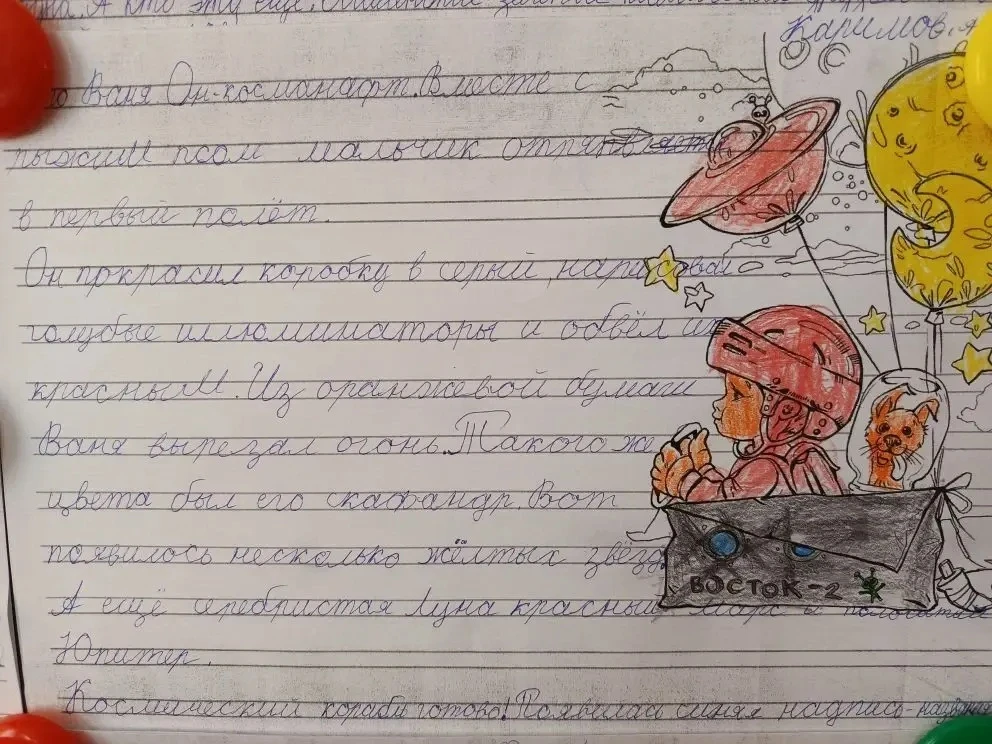 А кто эту ещё,
Каримов. я
Ваня Он-космонафт. Вместе с
рыжим псом мальчик отправ
в первый полёт.
Он покрасил коробку в серый, нарисовал
голубые иллюминаторы и обвёл их
красным. Из оранжевой бумаги
Ваня вырезал огонь. Такого же
цвета был его скафандр. Вот
появилось несколько жёлтых звёзд
А ещё серебристая Луна красный Марс и полосатый
Юпитер.
Космический корабь готово! Появилась синяя надпись-названия
ВОСТОК-2